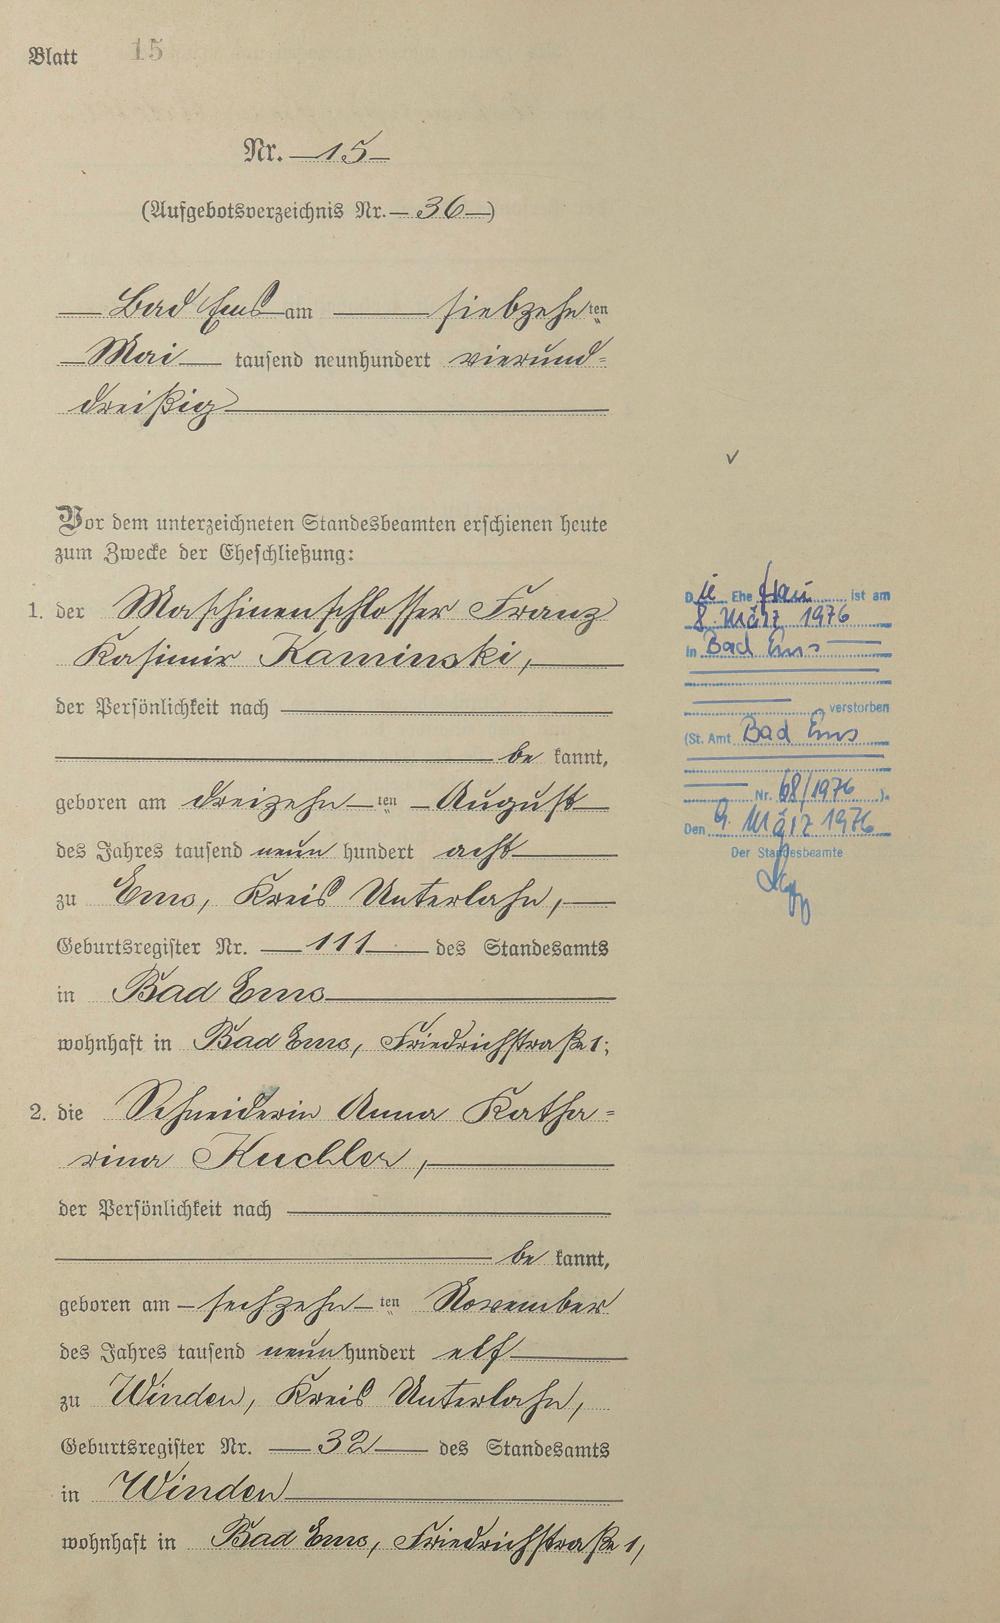 Blatt 15
Nr. 15
(Aufgebotsverzeichnis Nr. 36)
Bad Ems am siebzehnten
Mai tausend neunhundert vierund-
dreißig
Vor dem unterzeichneten Standesbeamten erschienen heute
zum Zwecke der Eheschließung:
1. der Maschinenschlosser Franz
Kasimir Kaminski,
der Persönlichkeit nach
bekannt,
geboren am dreizehnten August
des Jahres tausend neunhundert acht
zu Ems, Kreis Unterlahn,
Geburtsregister Nr. 111 des Standesamts
in Bad Ems
wohnhaft in Bad Ems, Friedrichstraße 1;
2. die Schneiderin Anna Katha-
rina Kuchler,
der Persönlichkeit nach
bekannt,
geboren am sechzehnten November
des Jahres tausend neunhundert elf
zu Winden, Kreis Unterlahn,
Geburtsregister Nr. 32 des Standesamts
in Winden
wohnhaft in Bad Ems, Friedrichstraße 1,
Die Ehefrau ist am
8. März 1976
in Bad Ems
verstorben
(St. Amt Bad Ems
Nr. 68/1976).
Den 9. März 1976
Der Standesbeamte